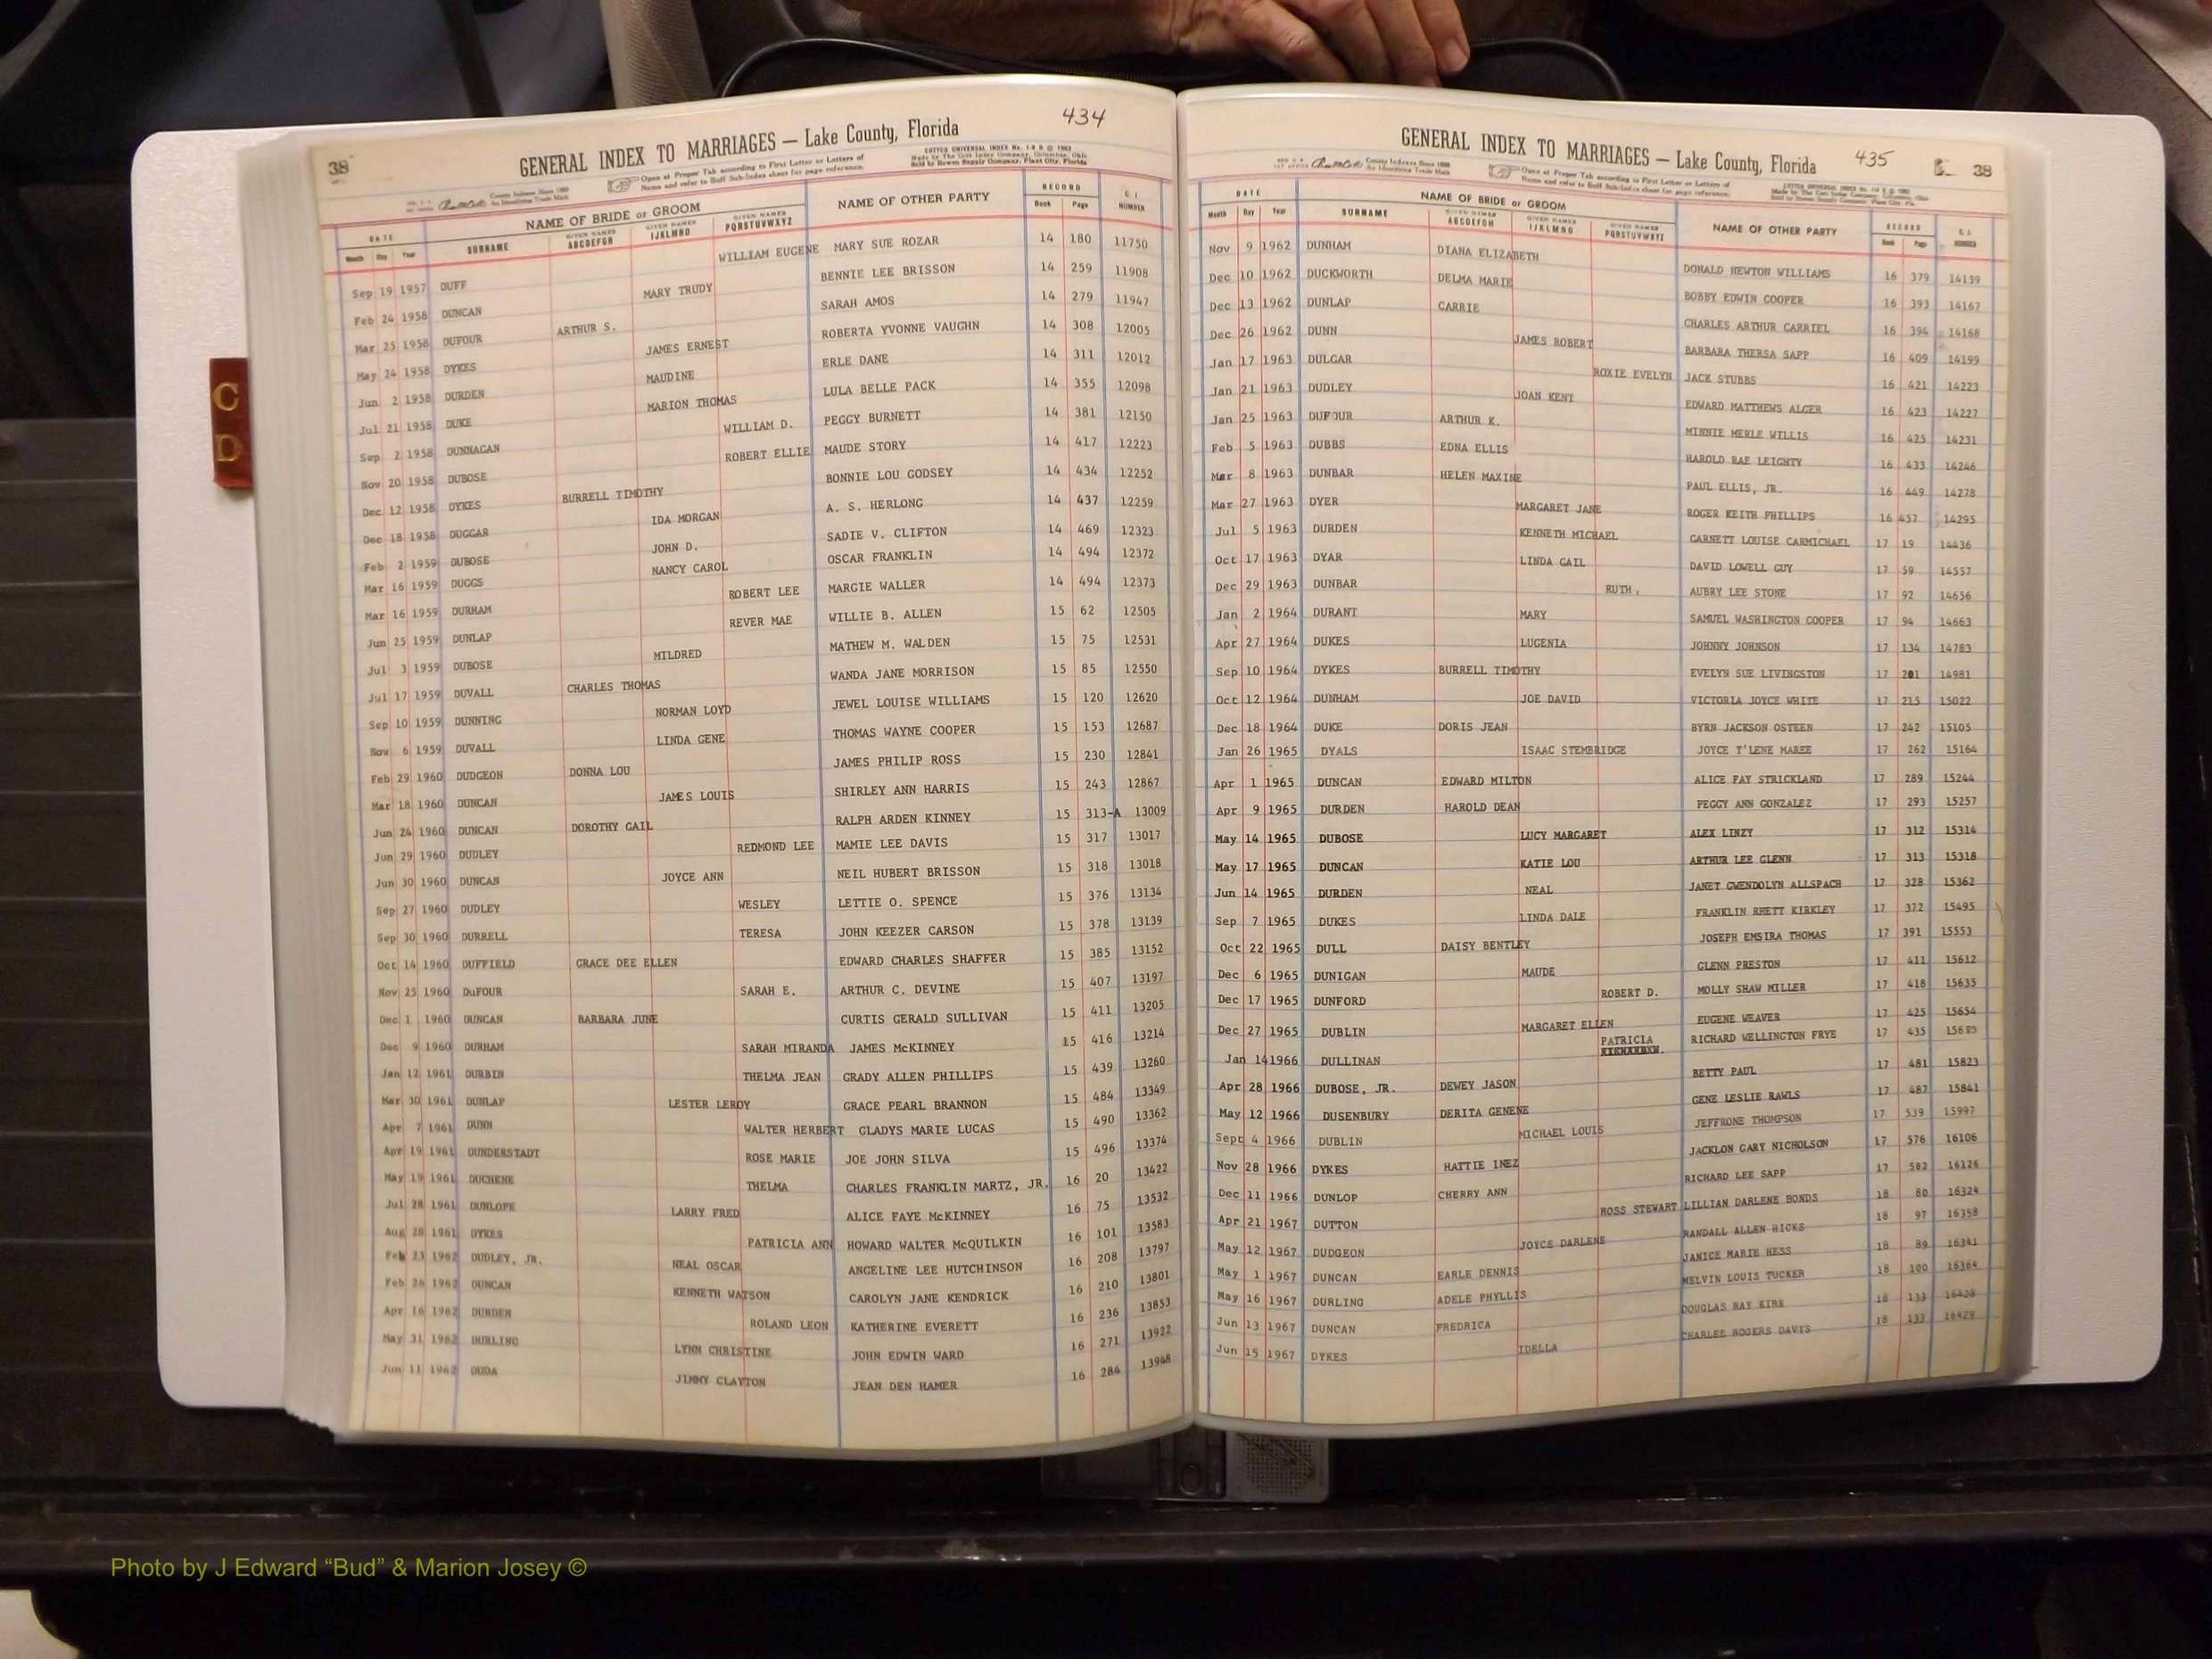 C
D
38
434
GENERAL INDEX TO MARRIAGES — Lake County, Florida
COTTCO UNIVERSAL INDEX
Made by The Cott Index Company, Columbus, Ohio
Sold by Bowen Supply Company, Plant City, Florida
County Indexes Since 1888
An Identifying Trade Mark
Open at Proper Tab according to First Letter or Letters of
Name and refer to Buff Sub-Index sheet for page reference.
DATE NAME OF BRIDE or GROOM NAME OF OTHER PARTY RECORD C. I. NUMBER
Month Day Year SURNAME GIVEN NAMES ABCDEFGH GIVEN NAMES IJKLMNO GIVEN NAMES PQRSTUVWXYZ Book Page
Sep 19 1957 DUFF WILLIAM EUGENE MARY SUE ROZAR 14 180 11750
Feb 24 1958 DUNCAN MARY TRUDY BENNIE LEE BRISSON 14 259 11908
Mar 25 1958 DUFOUR ARTHUR S. SARAH AMOS 14 279 11947
May 24 1958 DYKES JAMES ERNEST ROBERTA YVONNE VAUGHN 14 308 12005
Jun 2 1958 DURDEN MAUDINE ERLE DANE 14 311 12012
Jul 21 1958 DUKE MARION THOMAS LULA BELLE PACK 14 355 12098
Sep 2 1958 DUNNAGAN WILLIAM D. PEGGY BURNETT 14 381 12150
Nov 20 1958 DUBOSE ROBERT ELLIE MAUDE STORY 14 417 12223
Dec 12 1958 DYKES BURRELL TIMOTHY BONNIE LOU GODSEY 14 434 12252
Dec 18 1958 DUGGAR IDA MORGAN A. S. HERLONG 14 437 12259
Feb 2 1959 DUBOSE JOHN D. SADIE V. CLIFTON 14 469 12323
Mar 16 1959 DUGGS NANCY CAROL OSCAR FRANKLIN 14 494 12372
Mar 16 1959 DURHAM ROBERT LEE MARGIE WALLER 14 494 12373
Jun 25 1959 DUNLAP REVER MAE WILLIE B. ALLEN 15 62 12505
Jul 3 1959 DUBOSE MILDRED MATHEW M. WALDEN 15 75 12531
Jul 17 1959 DUVALL CHARLES THOMAS WANDA JANE MORRISON 15 85 12550
Sep 10 1959 DUNNING NORMAN LOYD JEWEL LOUISE WILLIAMS 15 120 12620
Nov 6 1959 DUVALL LINDA GENE THOMAS WAYNE COOPER 15 153 12687
Feb 29 1960 DUDGEON DONNA LOU JAMES PHILIP ROSS 15 230 12841
Mar 18 1960 DUNCAN JAMES LOUIS SHIRLEY ANN HARRIS 15 243 12867
Jun 24 1960 DUNCAN DOROTHY GAIL RALPH ARDEN KINNEY 15 313-A 13009
Jun 29 1960 DUDLEY REDMOND LEE MAMIE LEE DAVIS 15 317 13017
Jun 30 1960 DUNCAN JOYCE ANN NEIL HUBERT BRISSON 15 318 13018
Sep 27 1960 DUDLEY WESLEY LETTIE O. SPENCE 15 376 13134
Sep 30 1960 DURRELL TERESA JOHN KEEZER CARSON 15 378 13139
Oct 14 1960 DUFFIELD GRACE DEE ELLEN EDWARD CHARLES SHAFFER 15 385 13152
Nov 25 1960 DuFOUR SARAH E. ARTHUR C. DEVINE 15 407 13197
Dec 1 1960 DUNCAN BARBARA JUNE CURTIS GERALD SULLIVAN 15 411 13205
Dec 9 1960 DURHAM SARAH MIRANDA JAMES McKINNEY 15 416 13214
Jan 12 1961 DURBIN THELMA JEAN GRADY ALLEN PHILLIPS 15 439 13260
Mar 30 1961 DUNLAP LESTER LEROY GRACE PEARL BRANNON 15 484 13349
Apr 7 1961 DUNN WALTER HERBERT GLADYS MARIE LUCAS 15 490 13362
Apr 19 1961 DUNDERSTADT ROSE MARIE JOE JOHN SILVA 15 496 13374
May 19 1961 DUCHENE THELMA CHARLES FRANKLIN MARTZ, JR. 16 20 13422
Jul 28 1961 DUNLOPE LARRY FRED ALICE FAYE McKINNEY 16 75 13532
Aug 28 1961 DYKES PATRICIA ANN HOWARD WALTER McQUILKIN 16 101 13583
Feb 23 1962 DUDLEY, JR. NEAL OSCAR ANGELINE LEE HUTCHINSON 16 208 13797
Feb 26 1962 DUNCAN KENNETH WATSON CAROLYN JANE KENDRICK 16 210 13801
Apr 16 1962 DURDEN ROLAND LEON KATHERINE EVERETT 16 236 13853
May 31 1962 DURLING LYNN CHRISTINE JOHN EDWIN WARD 16 271 13922
Jun 11 1962 DUDA JIMMY CLAYTON JEAN DEN HAMER 16 284 13948
GENERAL INDEX TO MARRIAGES — Lake County, Florida
435
38
County Indexes Since 1888
An Identifying Trade Mark
Open at Proper Tab according to First Letter or Letters of
Name and refer to Buff Sub-Index sheet for page reference.
DATE NAME OF BRIDE or GROOM NAME OF OTHER PARTY RECORD C. I. NUMBER
Month Day Year SURNAME GIVEN NAMES ABCDEFGH GIVEN NAMES IJKLMNO GIVEN NAMES PQRSTUVWXYZ Book Page
Nov 9 1962 DUNHAM DIANA ELIZABETH DONALD NEWTON WILLIAMS 16 379 14139
Dec 10 1962 DUCKWORTH DELMA MARIE BOBBY EDWIN COOPER 16 393 14167
Dec 13 1962 DUNLAP CARRIE CHARLES ARTHUR CARRIEL 16 394 14168
Dec 26 1962 DUNN JAMES ROBERT BARBARA THERSA SAPP 16 409 14199
Jan 17 1963 DULGAR ROXIE EVELYN JACK STUBBS 16 421 14223
Jan 21 1963 DUDLEY JOAN KENT EDWARD MATTHEWS ALGER 16 423 14227
Jan 25 1963 DUFOUR ARTHUR K. MINNIE MERLE WILLIS 16 425 14231
Feb 5 1963 DUBBS EDNA ELLIS HAROLD RAE LEIGHTY 16 433 14246
Mar 8 1963 DUNBAR HELEN MAXINE PAUL ELLIS, JR. 16 449 14278
Mar 27 1963 DYER MARGARET JANE ROGER KEITH PHILLIPS 16 457 14295
Jul 5 1963 DURDEN KENNETH MICHAEL GARNETT LOUISE CARMICHAEL 17 19 14436
Oct 17 1963 DYAR LINDA GAIL DAVID LOWELL GUY 17 59 14557
Dec 29 1963 DUNBAR RUTH, AUBRY LEE STONE 17 92 14656
Jan 2 1964 DURANT MARY SAMUEL WASHINGTON COOPER 17 94 14663
Apr 27 1964 DUKES LUGENIA JOHNNY JOHNSON 17 134 14783
Sep 10 1964 DYKES BURRELL TIMOTHY EVELYN SUE LIVINGSTON 17 201 14981
Oct 12 1964 DUNHAM JOE DAVID VICTORIA JOYCE WHITE 17 215 15022
Dec 18 1964 DUKE DORIS JEAN BYRN JACKSON OSTEEN 17 242 15105
Jan 26 1965 DYALS ISAAC STEMBRIDGE JOYCE T'LENE MAREE 17 262 15164
Apr 1 1965 DUNCAN EDWARD MILTON ALICE FAY STRICKLAND 17 289 15244
Apr 9 1965 DURDEN HAROLD DEAN PEGGY ANN GONZALEZ 17 293 15257
May 14 1965 DUBOSE LUCY MARGARET ALEX LINZY 17 312 15314
May 17 1965 DUNCAN KATIE LOU ARTHUR LEE GLENN 17 313 15318
Jun 14 1965 DURDEN NEAL JANET GWENDOLYN ALLSPACH 17 328 15362
Sep 7 1965 DUKES LINDA DALE FRANKLIN RHETT KIRKLEY 17 372 15495
Oct 22 1965 DULL DAISY BENTLEY JOSEPH EMSIRA THOMAS 17 391 15553
Dec 6 1965 DUNIGAN MAUDE GLENN PRESTON 17 411 15612
Dec 17 1965 DUNFORD ROBERT D. MOLLY SHAW MILLER 17 418 15635
Dec 27 1965 DUBLIN MARGARET ELLEN EUGENE WEAVER 17 425 15654
Jan 14 1966 DULLINAN PATRICIA RICHARD WELLINGTON FRYE 17 435
Apr 28 1966 DUBOSE, JR. DEWEY JASON BETTY PAUL 17 481 15823
May 12 1966 DUSENBURY DERITA GENENE GENE LESLIE RAWLS 17 487 15841
Sept 4 1966 DUBLIN MICHAEL LOUIS JEFFRONE THOMPSON 17 539 15997
Nov 28 1966 DYKES HATTIE INEZ JACKLON GARY NICHOLSON 17 576 16106
Dec 11 1966 DUNLOP CHERRY ANN RICHARD LEE SAPP 17 582 16126
Apr 21 1967 DUTTON ROSS STEWART LILLIAN DARLENE BONDS 18 80 16324
May 12 1967 DUDGEON JOYCE DARLENE RANDALL ALLEN HICKS 18 97 16358
May 1 1967 DUNCAN EARLE DENNIS JANICE MARIE HESS 18 89 16341
May 16 1967 DURLING ADELE PHYLLIS MELVIN LOUIS TUCKER 18 100 16364
Jun 13 1967 DUNCAN FREDRICA DOUGLAS RAY KIRK 18 133 16428
Jun 15 1967 DYKES IDELLA CHARLEE ROGERS DAVIS 18 133 16429
Photo by J Edward “Bud” & Marion Josey ©